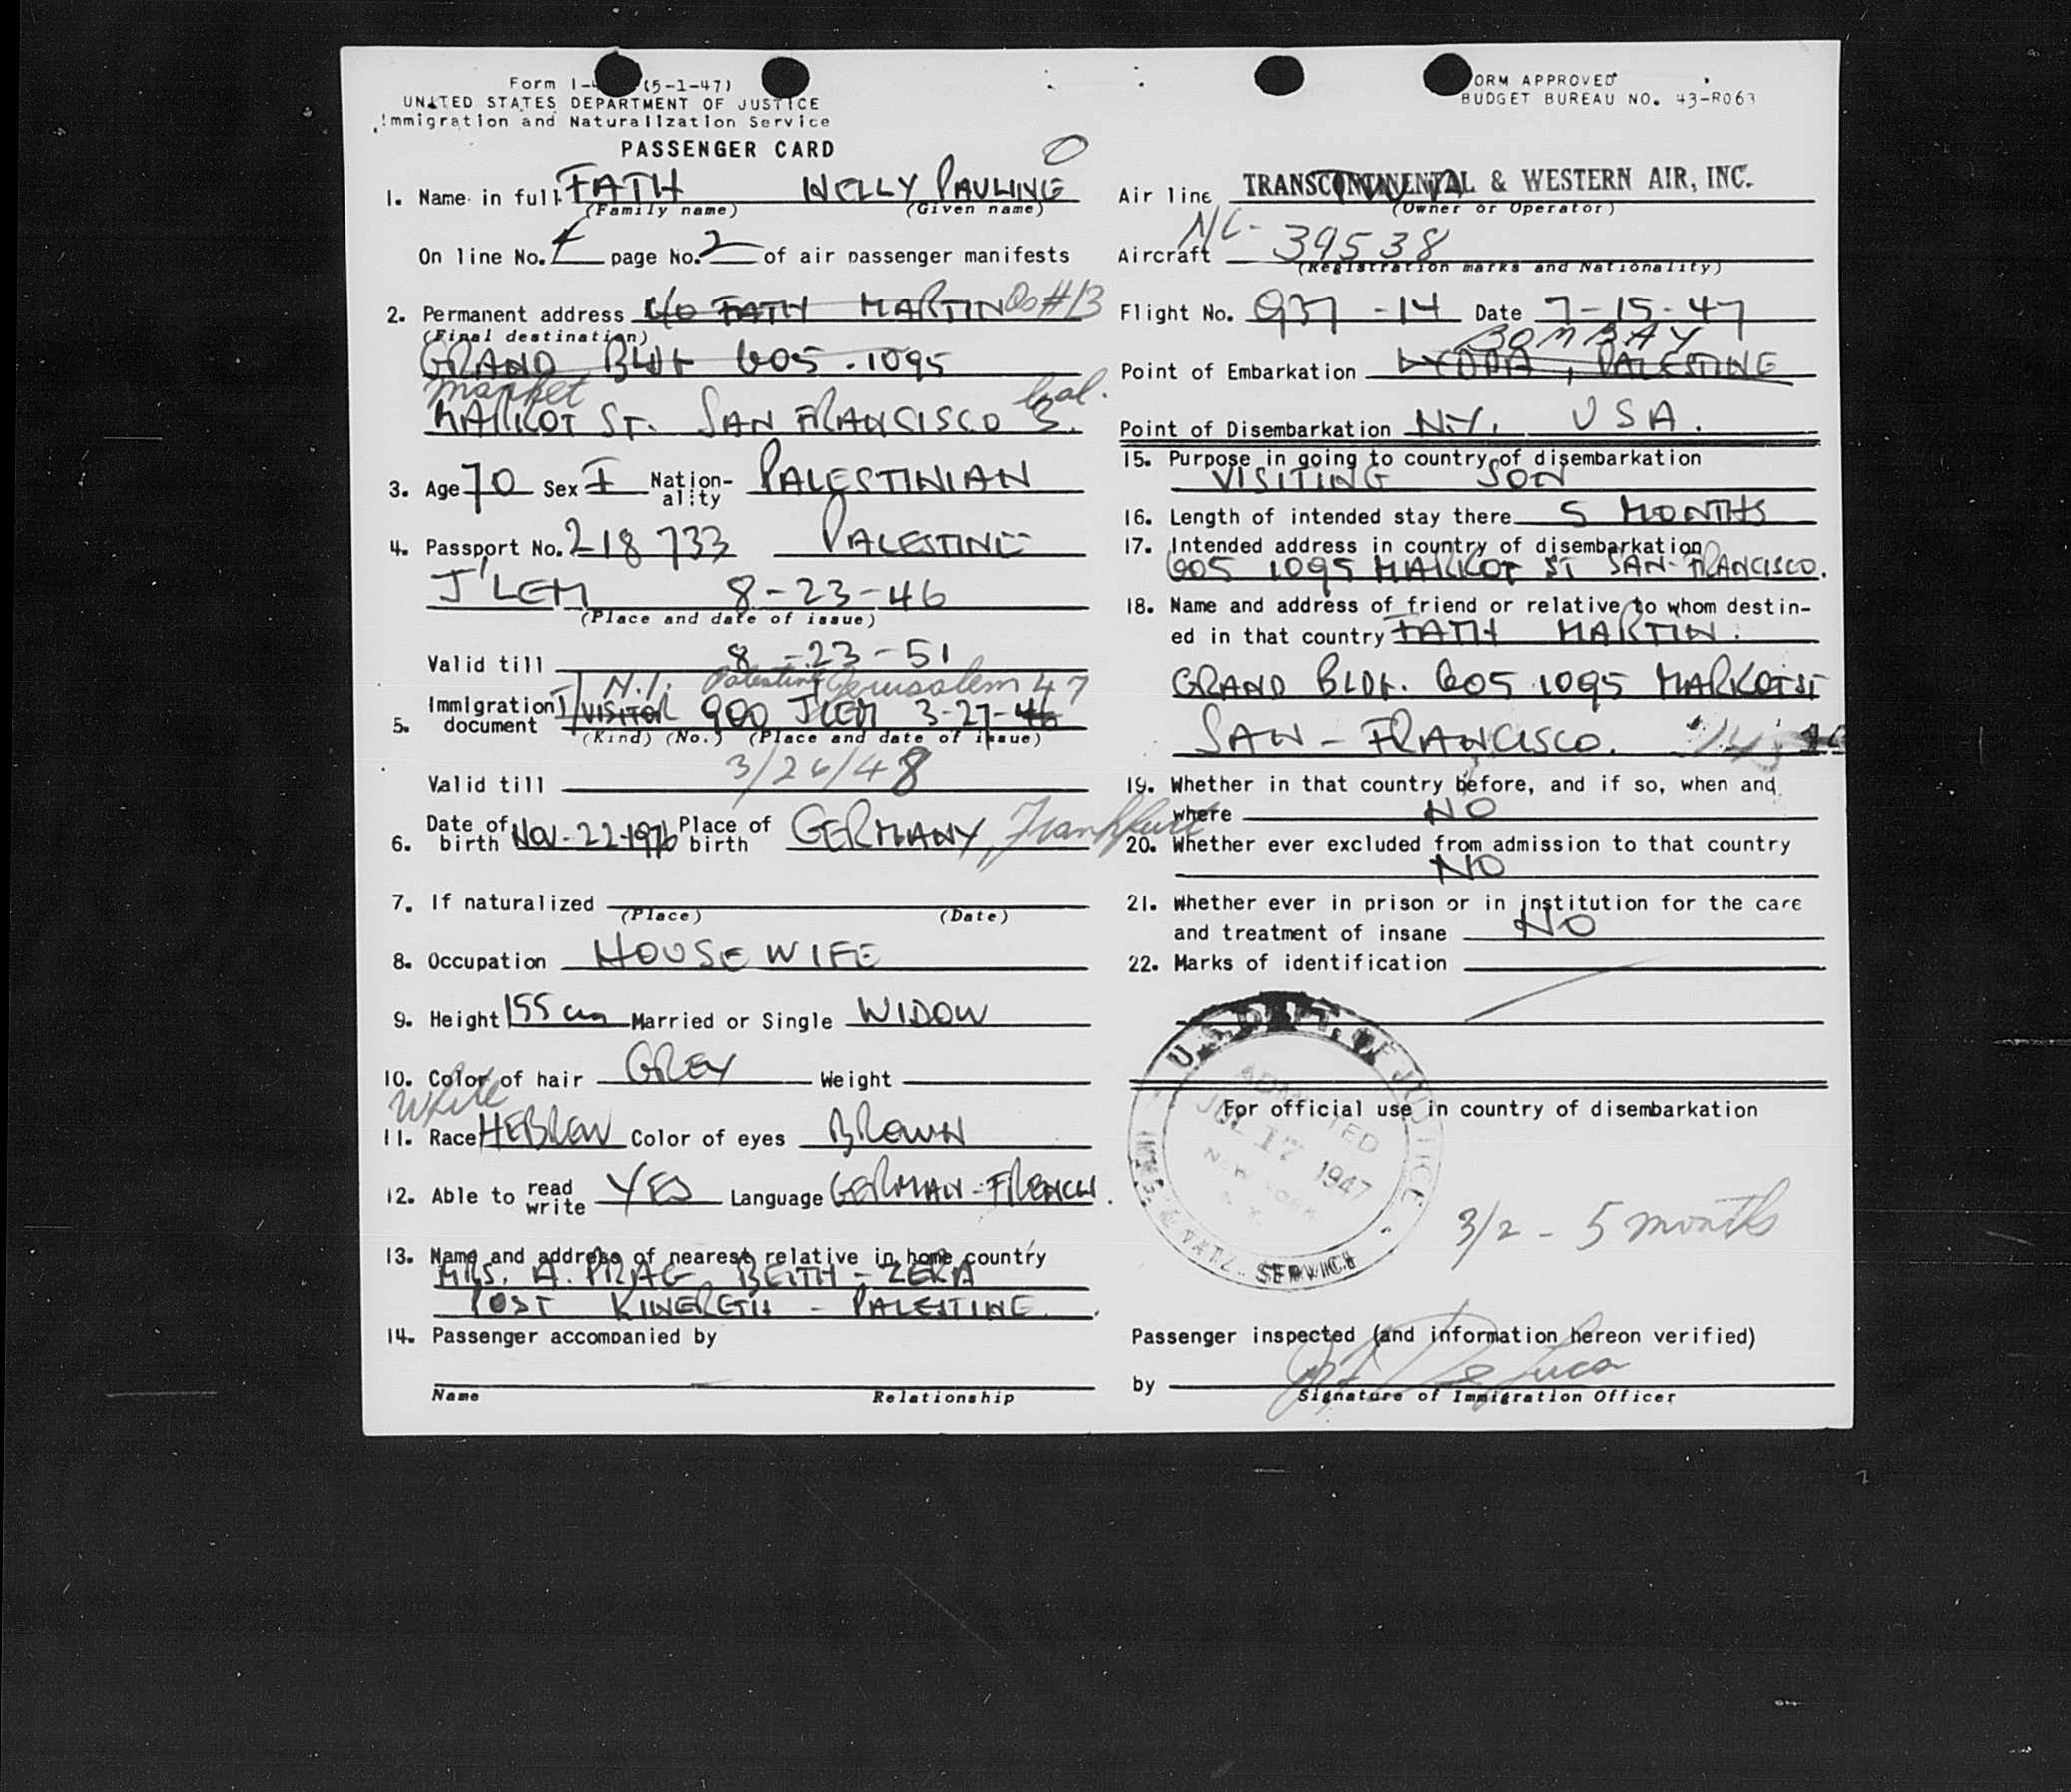 Form I- (5-1-47)
UNITED STATES DEPARTMENT OF JUSTICE
Immigration and Naturalization Service
PASSENGER CARD
ORM APPROVED
BUDGET BUREAU NO. 43-R063
1. Name in full FATH NELLY PAULINE
(Family name) (Given name)
On line No. 4 page No. 2 of air passenger manifests
2. Permanent address C/O FATH MARTIN As #13
(Final destination)
GRAND BLDG 605 . 1095
market
MARKOT ST. SAN FRANCISCO 3. Cal.
3. Age 70 Sex F Nation-ality PALESTINIAN
4. Passport No. 218 733 PALESTINE
J'LEM 8-23-46
(Place and date of issue)
Valid till 8-23-51
N.I. Palestine Jerusalem 47
5. Immigration document VISITOR 900 J'LEM 3-27-46
(Kind) (No.) (Place and date of issue)
Valid till 3/26/48
6. Date of birth NOV-22-1976 Place of birth GERMANY, Frankfurt
7. If naturalized
(Place) (Date)
8. Occupation HOUSEWIFE
9. Height 155 cm Married or Single WIDOW
10. Color of hair GREY Weight
White
11. Race HEBREW Color of eyes BROWN
12. Able to read write YES Language GERMAN-FRENCH.
13. Name and address of nearest relative in home country
MRS. A. PRAG BEITH-ZERA
POST KINERETH - PALESTINE.
14. Passenger accompanied by
Name Relationship
Air line TRANSCONTINENTAL & WESTERN AIR, INC.
(Owner or Operator)
NC-
Aircraft 39538
(Registration marks and Nationality)
Flight No. 937-14 Date 7-15-47
BOMBAY
Point of Embarkation LYDDA, PALESTINE
Point of Disembarkation N.Y. USA.
15. Purpose in going to country of disembarkation
VISITING SON
16. Length of intended stay there 5 MONTHS
17. Intended address in country of disembarkation
605 1095 MARKOT ST SAN-FRANCISCO.
18. Name and address of friend or relative to whom destin-
ed in that country FATH MARTIN.
GRAND BLDG. 605 1095 MARKOT ST
SAN-FRANCISCO.
19. Whether in that country before, and if so, when and
where NO
20. Whether ever excluded from admission to that country
NO
21. Whether ever in prison or in institution for the care
and treatment of insane NO
22. Marks of identification
U.S. DEPT. OF JUSTICE
ADMITTED
JUL 17 1947
NEW YORK
N.Y.
IMM. & NATZ. SERVICE
For official use in country of disembarkation
3/2 - 5 months
Passenger inspected (and information hereon verified)
by De Luca
Signature of Immigration Officer